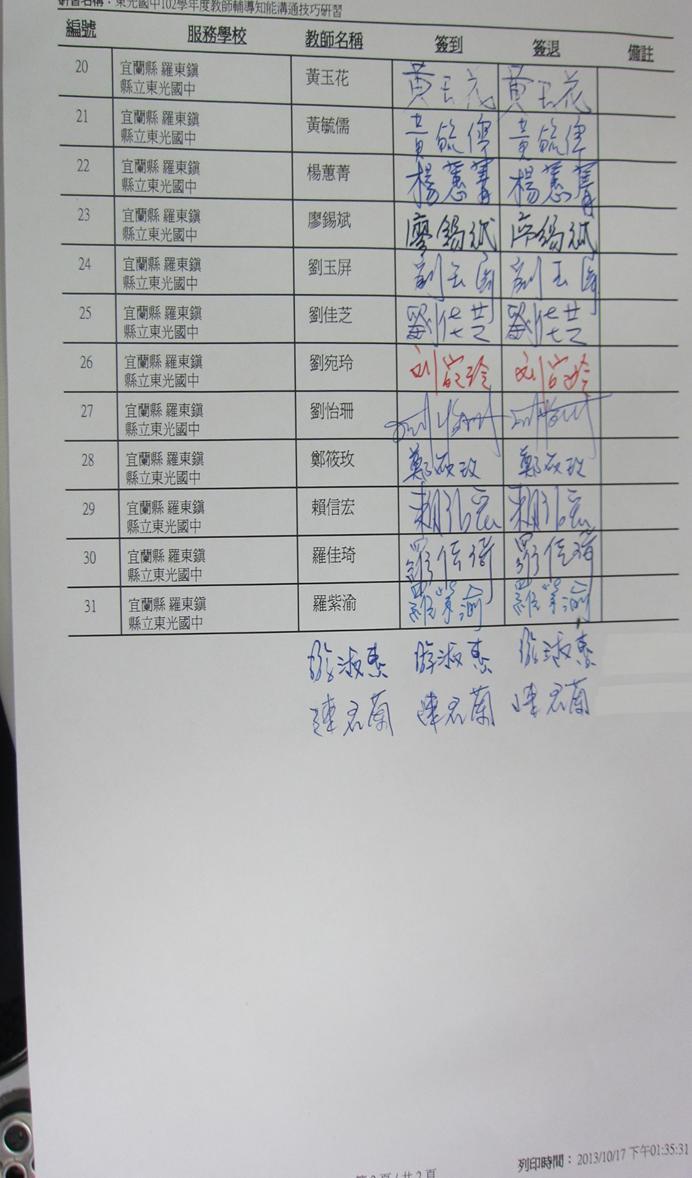 研習名稱：東光國中102學年度教師輔導知能溝通技巧研習
編號 服務學校 教師名稱 簽到 簽退 備註
20 宜蘭縣 羅東鎮 黃玉花 黃玉花 黃玉花
縣立東光國中
21 宜蘭縣 羅東鎮 黃毓儒 黃毓儒 黃毓儒
縣立東光國中
22 宜蘭縣 羅東鎮 楊蕙菁 楊蕙菁 楊蕙菁
縣立東光國中
23 宜蘭縣 羅東鎮 廖錫斌 廖錫斌 廖錫斌
縣立東光國中
24 宜蘭縣 羅東鎮 劉玉屏 劉玉屏 劉玉屏
縣立東光國中
25 宜蘭縣 羅東鎮 劉佳芝 劉佳芝 劉佳芝
縣立東光國中
26 宜蘭縣 羅東鎮 劉宛玲 刘宛玲 刘宛玲
縣立東光國中
27 宜蘭縣 羅東鎮 劉怡珊
縣立東光國中
28 宜蘭縣 羅東鎮 鄭筱玫 鄭筱玫 鄭筱玫
縣立東光國中
29 宜蘭縣 羅東鎮 賴信宏 賴信宏 賴信宏
縣立東光國中
30 宜蘭縣 羅東鎮 羅佳琦 羅佳琦 羅佳琦
縣立東光國中
31 宜蘭縣 羅東鎮 羅紫渝 羅紫渝 羅紫渝
縣立東光國中
淑惠 淑惠 淑惠
連君蘭 連君蘭 連君蘭
列印時間：2013/10/17 下午01:35:31
第2頁/共2頁